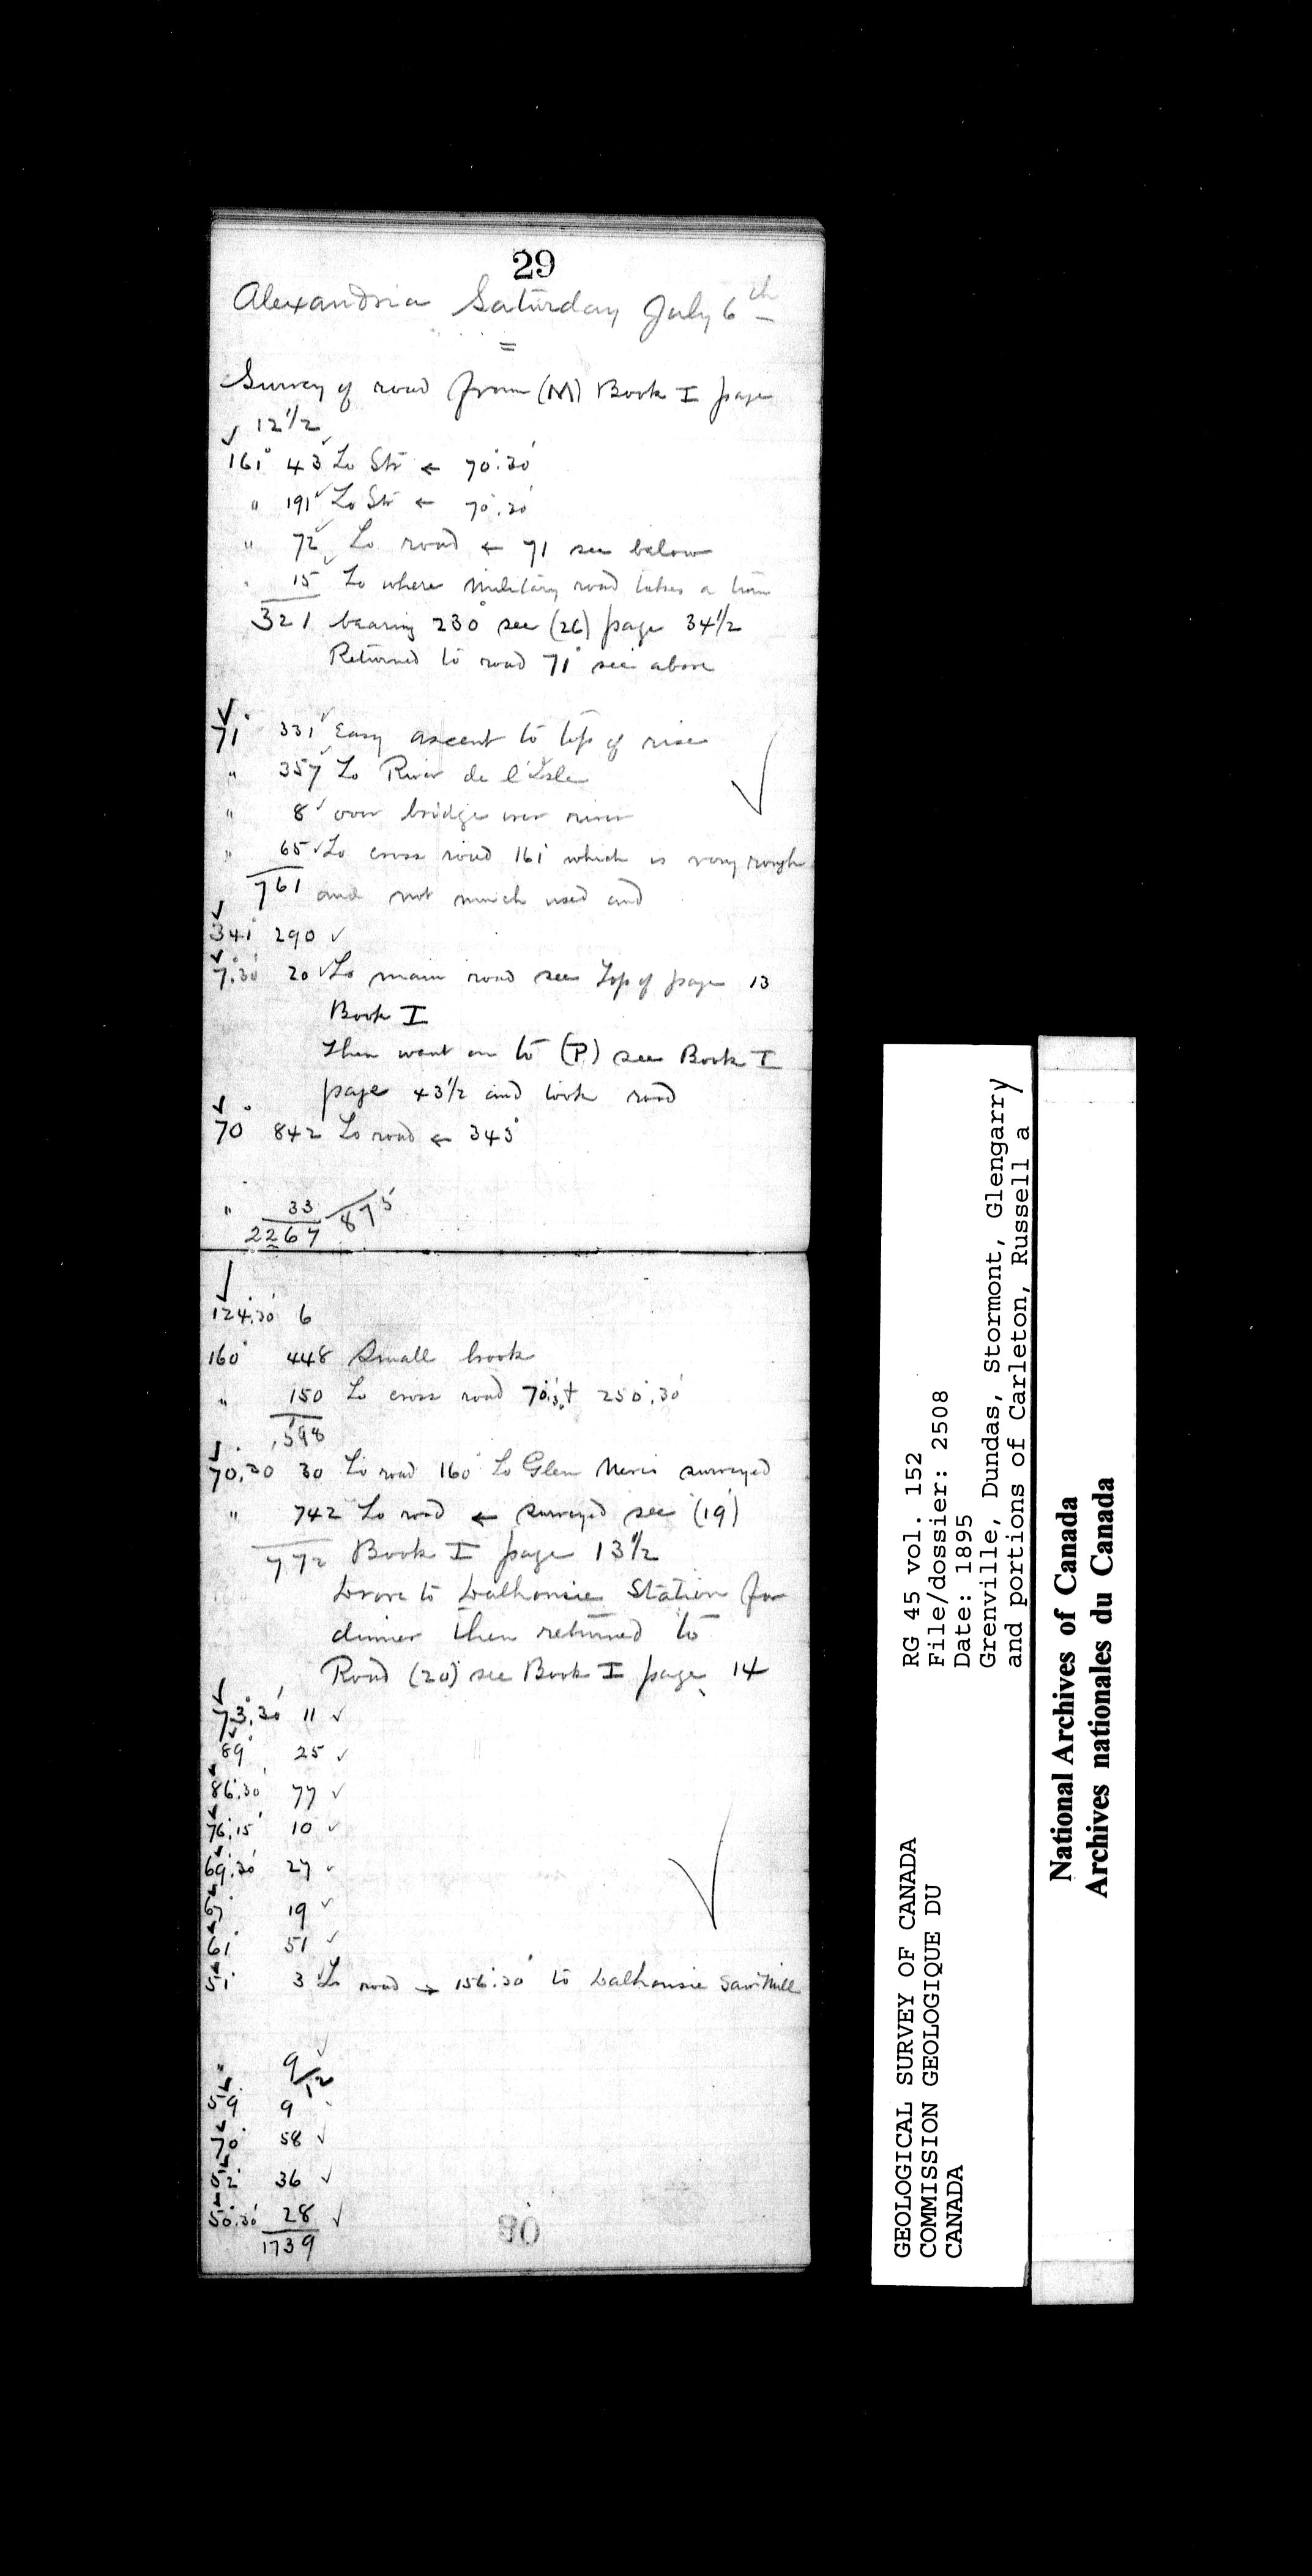 29
Alexandria Saturday July 6th
=
Survey of road from (M) Book I page
12 1/2
161° 43 To Str ← 70°.30'
" 191 To Str ← 70°.30'
" 72 To road ← 71 see below
" 15 To where Military road takes a turn
321 bearing 230° see (26) page 34 1/2
Returned to road 71° see above
71° 331 Easy ascent to top of rise
" 357 To River de l'Isle
" 8 over bridge over river
" 65 To cross road 161° which is very rough
761 and not much used and
341° 290
7°.30' 20 To main road see Top of page 13
Book I
Then went on to (P) see Book I
page 43 1/2 and took road
70° 842 To road ← 343°
" 33 875
2267
124°.30' 6
160° 448 Small brook
" 150 To cross road 70°.30' + 250°.30'
598
70°.30 30 To road 160° To Glen Nevis surveyed
" 742 To road ← surveyed see (19)
772 Book I page 13 1/2
Drove to Dalhousie Station for
dinner then returned to
Road (20) see Book I page 14
73°.30' 11
89° 25
86°.30' 77
76°.15' 10
69°.30' 27
19
61° 51
51° 3 To road → 156°.30' to Dalhousie Saw Mill
" 9/12
59° 9
70° 58
52° 36
50°.30' 28
1739
30
GEOLOGICAL SURVEY OF CANADA
COMMISSION GEOLOGIQUE DU
CANADA
RG 45 vol. 152
File/dossier: 2508
Date: 1895
Grenville, Dundas, Stormont, Glengarry
and portions of Carleton, Russell a
National Archives of Canada
Archives nationales du Canada